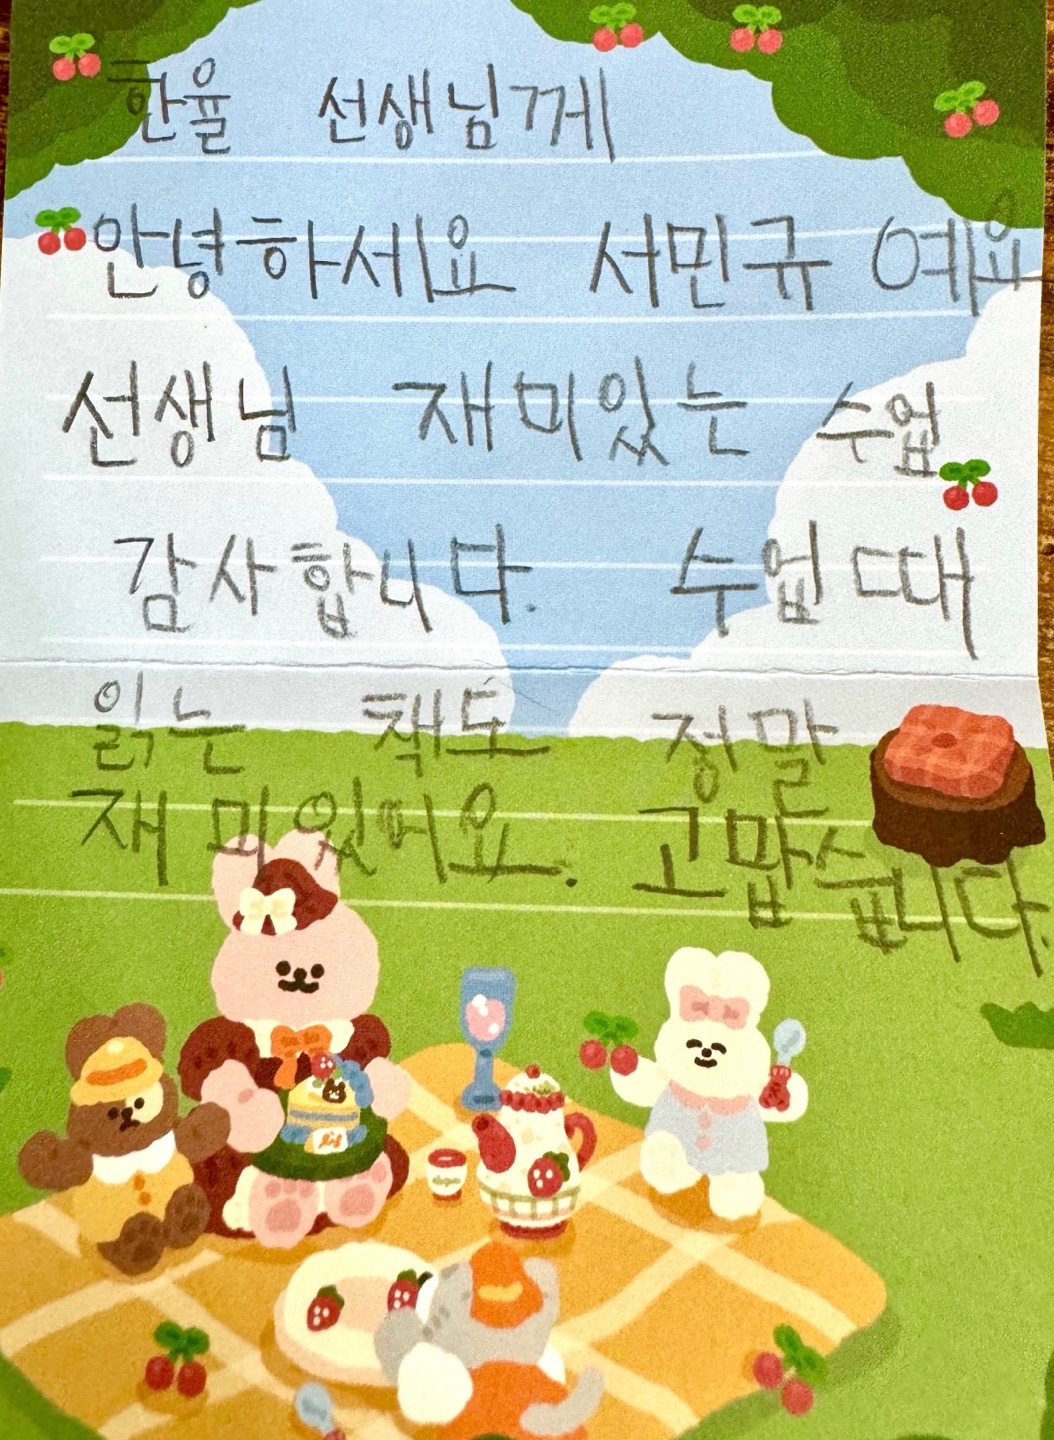 한율 선생님께
안녕하세요 서민규 예요
선생님 재미있는 수업
감사합니다. 수업 때
읽는 책도 정말
재미있어요. 고맙습니다.